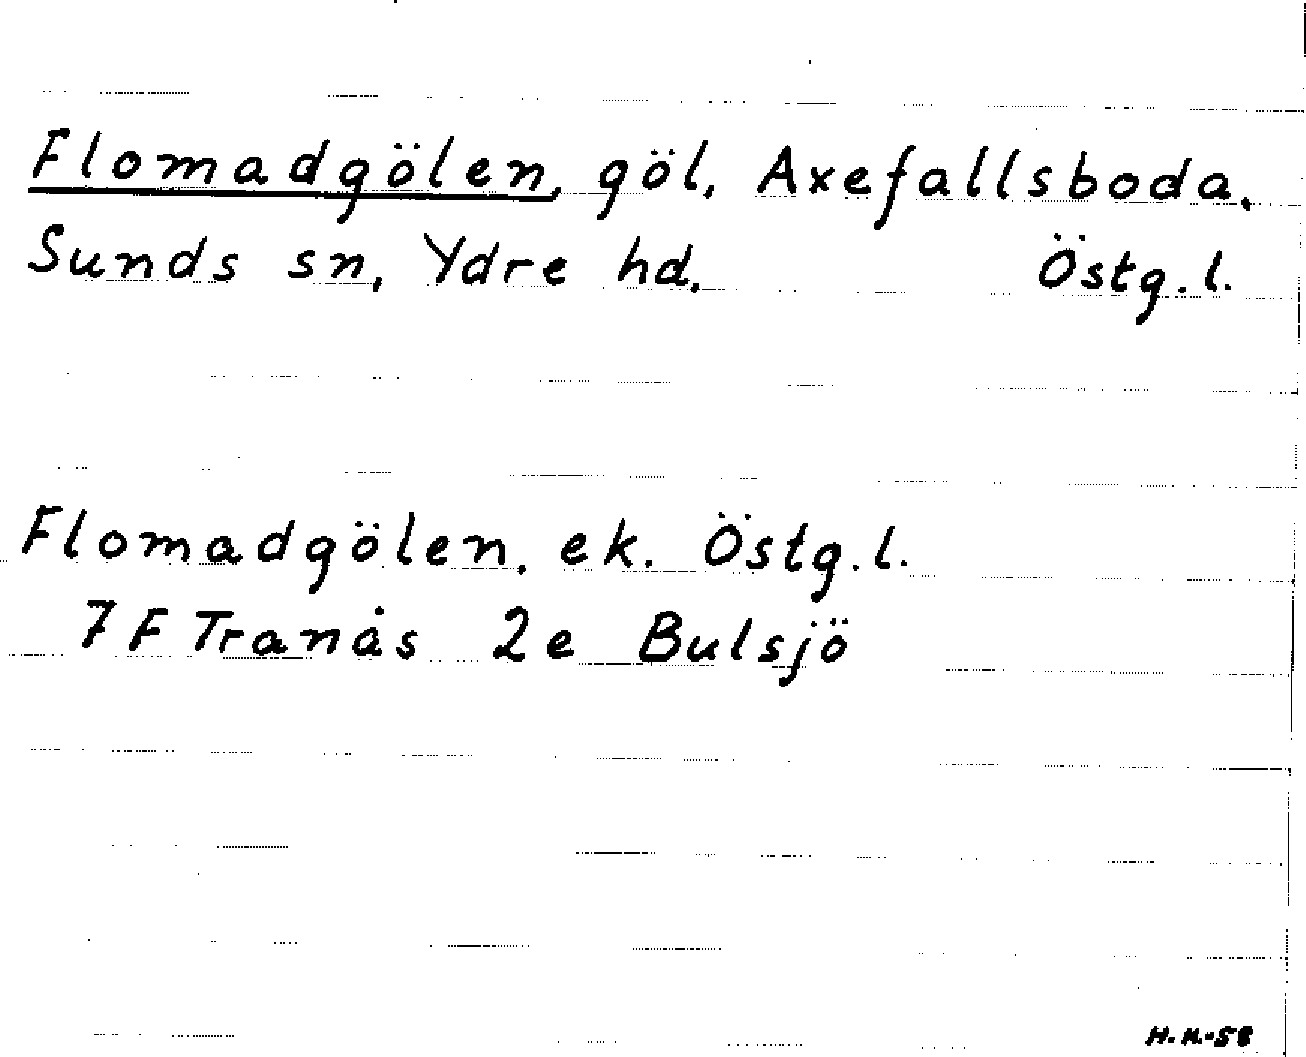 Flomadgölen, göl, Axefallsboda,
Sunds sn, Ydre hd, Östg.l.
Flomadgölen, ek. Östg.l.
7F Tranås 2e Bulsjö
H.K.-58